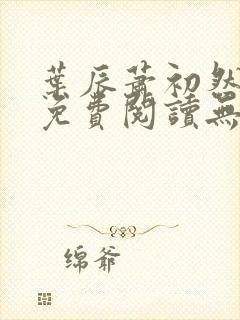 葉辰蕭初然
免費閱讀無
绵爷